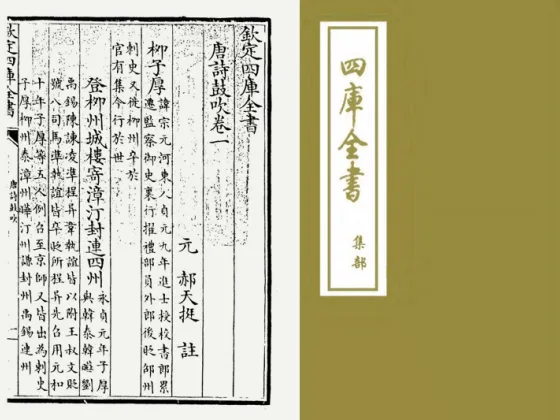 欽定四庫全書
唐詩鼓吹卷一
元 郝天挺 註
柳子厚
諱宗元河東人貞元九年進士授校書郎累
遷監察御史裏行擢禮部員外郎後貶邵州
刺史又徙柳州卒於
官有集今行於世
登柳州城樓寄漳汀封連四州
永貞元年子厚
與韓泰韓曄劉
禹錫陳諫凌準程异韋執誼皆以附王叔文貶
號八司馬準執誼皆卒貶所程异先召用元和
十年子厚等五人例召至京師又皆出為刺史
子厚柳州泰漳州曄汀州諫封州禹錫連州
欽定四庫全書
唐詩鼓吹
一
四庫全書
集部